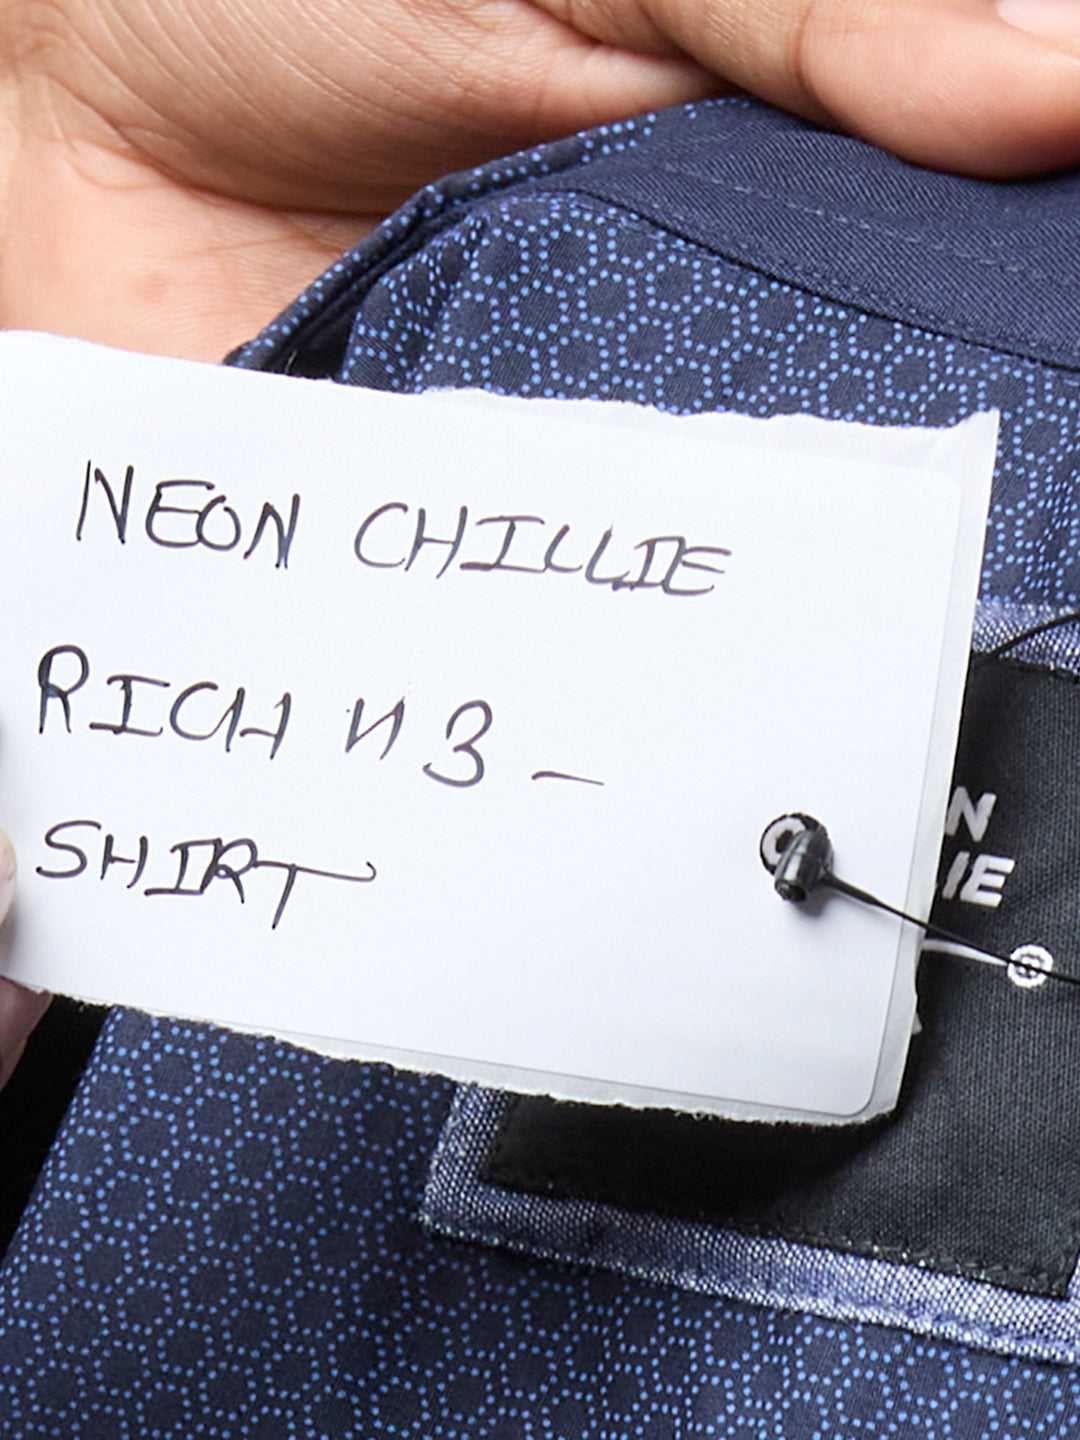 NEON CHILLIE
RICH N 3 -
SHIRT
N
IE